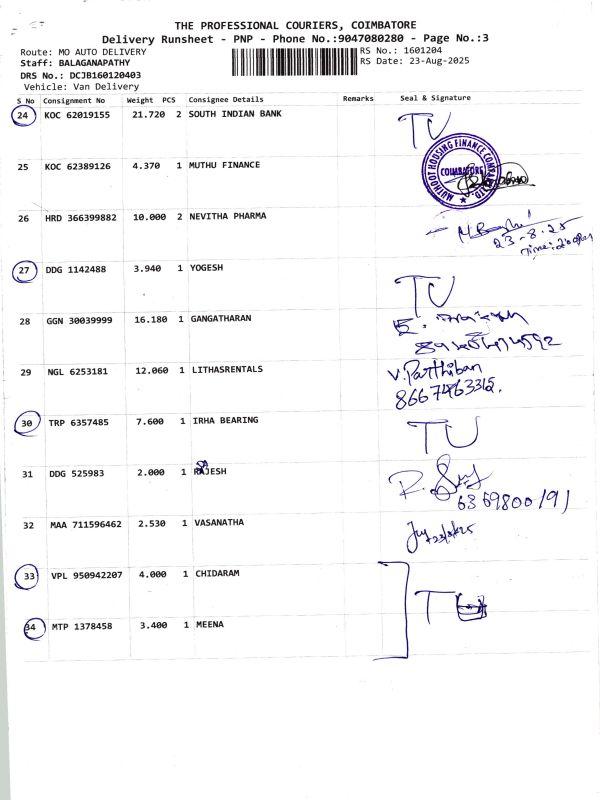 THE PROFESSIONAL COURIERS, COIMBATORE
Delivery Runsheet - PNP - Phone No.:9047080280 - Page No.:3
Route: MO AUTO DELIVERY
RS No.: 1601204
Staff: BALAGANAPATHY
RS Date: 23-Aug-2025
DRS No.: DCJB160120403
Vehicle: Van Delivery
S No Consignment No Weight PCS Consignee Details Remarks Seal & Signature
24 KOC 62019155 21.720 2 SOUTH INDIAN BANK TU
25 KOC 62389126 4.370 1 MUTHU FINANCE
MUTHOOT HOUSING FINANCE COMPANY LTD.
COIMBATORE
26 HRD 366399882 10.000 2 NEVITHA PHARMA
23-8-25
27 DDG 1142488 3.940 1 YOGESH TU
28 GGN 30039999 16.180 1 GANGATHARAN
29 NGL 6253181 12.060 1 LITHASRENTALS V.Parthiban
8667463315.
30 TRP 6357485 7.600 1 IRHA BEARING TU
31 DDG 525983 2.000 1 RAJESH R.
6369800191
32 MAA 711596462 2.530 1 VASANATHA
23/8/25
33 VPL 950942207 4.000 1 CHIDARAM
TU
34 MTP 1378458 3.400 1 MEENA